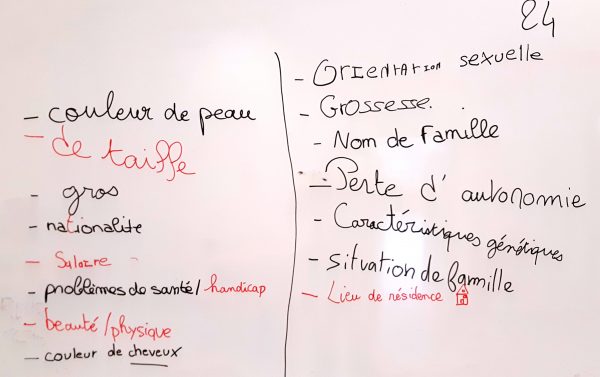 24
- couleur de peau
- de taiffe
- gros
- nationalite
- Salaire
- problèmes de santé / handicap
- beauté / physique
- couleur de cheveux
- Orientation sexuelle
- Grossesse.
- Nom de Famille
- Perte d'autonomie
- Caractéristiques génétiques
- situation de fammille
- Lieu de résidence